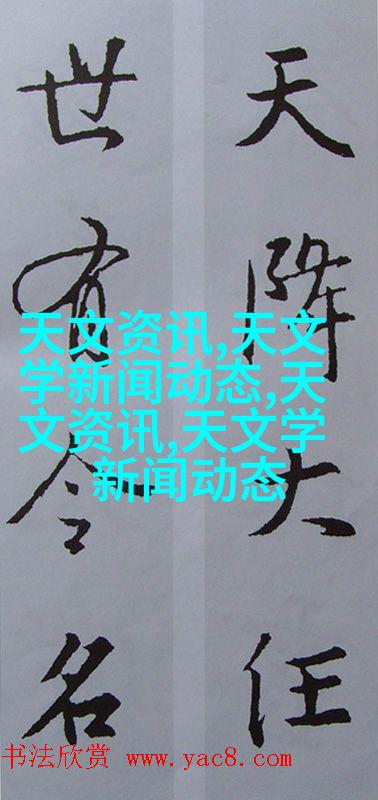 天降大任
世有令名
天文资讯,天文
学新闻动态,天
文资讯,天文学
新闻动态
书法欣赏 www.yac8.com